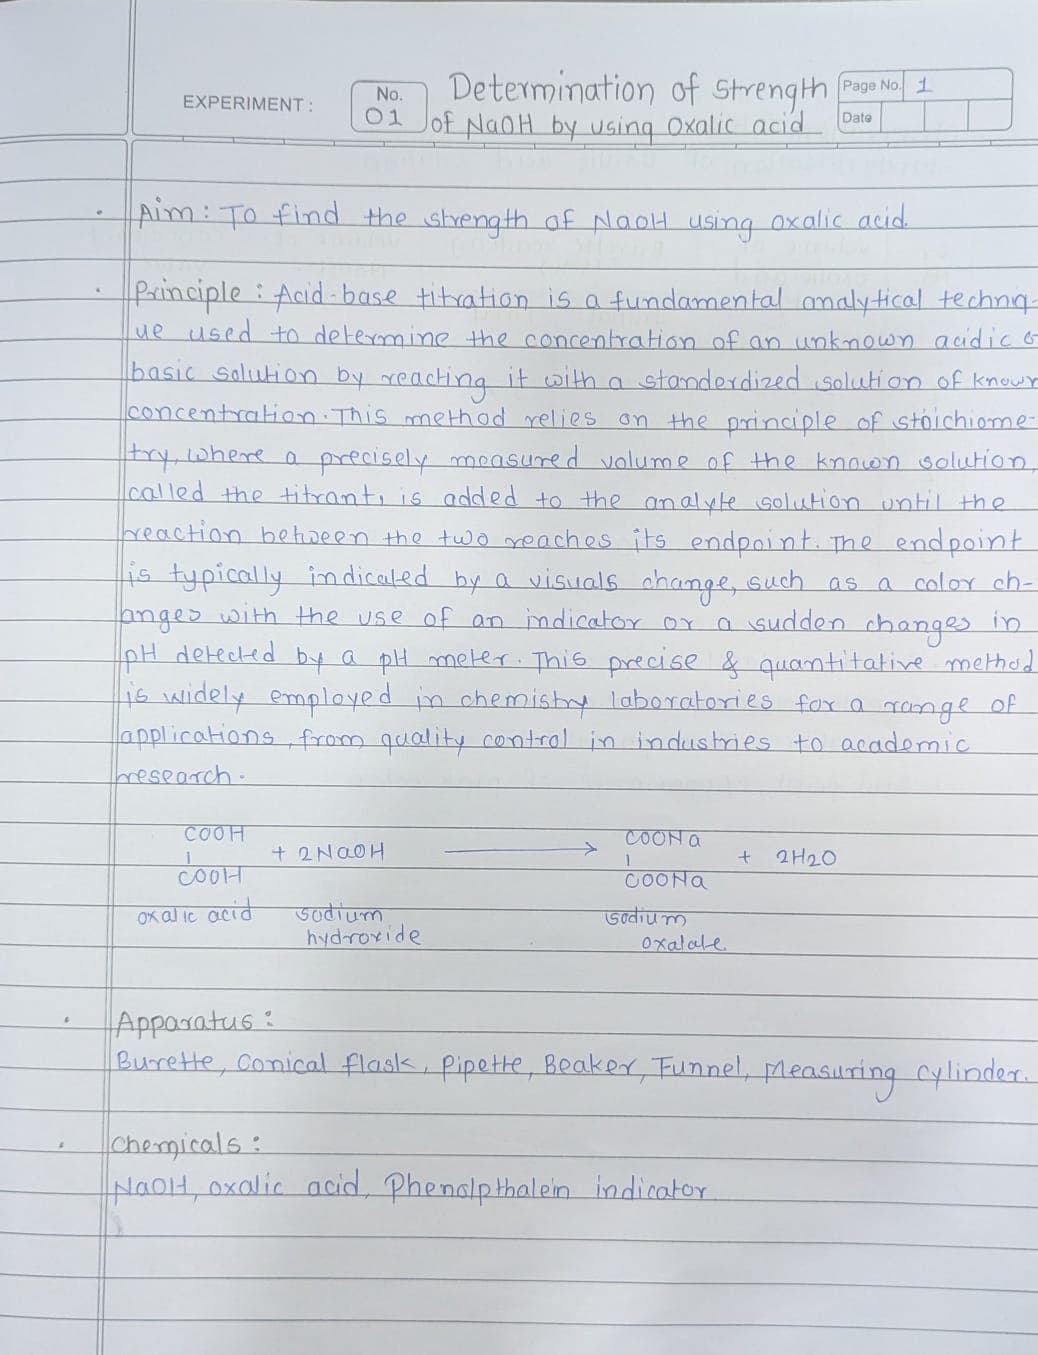 EXPERIMENT :
No.
01
Determination of Strength
of NaOH by using Oxalic acid
Page No. 1
Date
Aim : To find the strength of NaOH using oxalic acid.
Principle : Acid-base titration is a fundamental analytical techniq-
ue used to determine the concentration of an unknown acidic or
basic solution by reacting it with a standerdized solution of known
concentration. This method relies on the principle of stoichiome-
try, where a precisely measured volume of the known solution,
called the titrant, is added to the analyte solution until the
reaction between the two reaches its endpoint. The endpoint
is typically indicated by a visuals change, such as a color ch-
anges with the use of an indicator or a sudden changes in
pH detected by a pH meter. This precise & quantitative method
is widely employed in chemistry laboratories for a range of
applications, from quality control in industries to academic
research.
COOH COONa
| + 2NaOH ⟶ | + 2H2O
COOH COONa
oxalic acid sodium sodium
hydroxide oxalate
Apparatus :
Burette, Conical flask, Pipette, Beaker, Funnel, Measuring cylinder.
Chemicals :
NaOH, oxalic acid, Phenolpthalein indicator